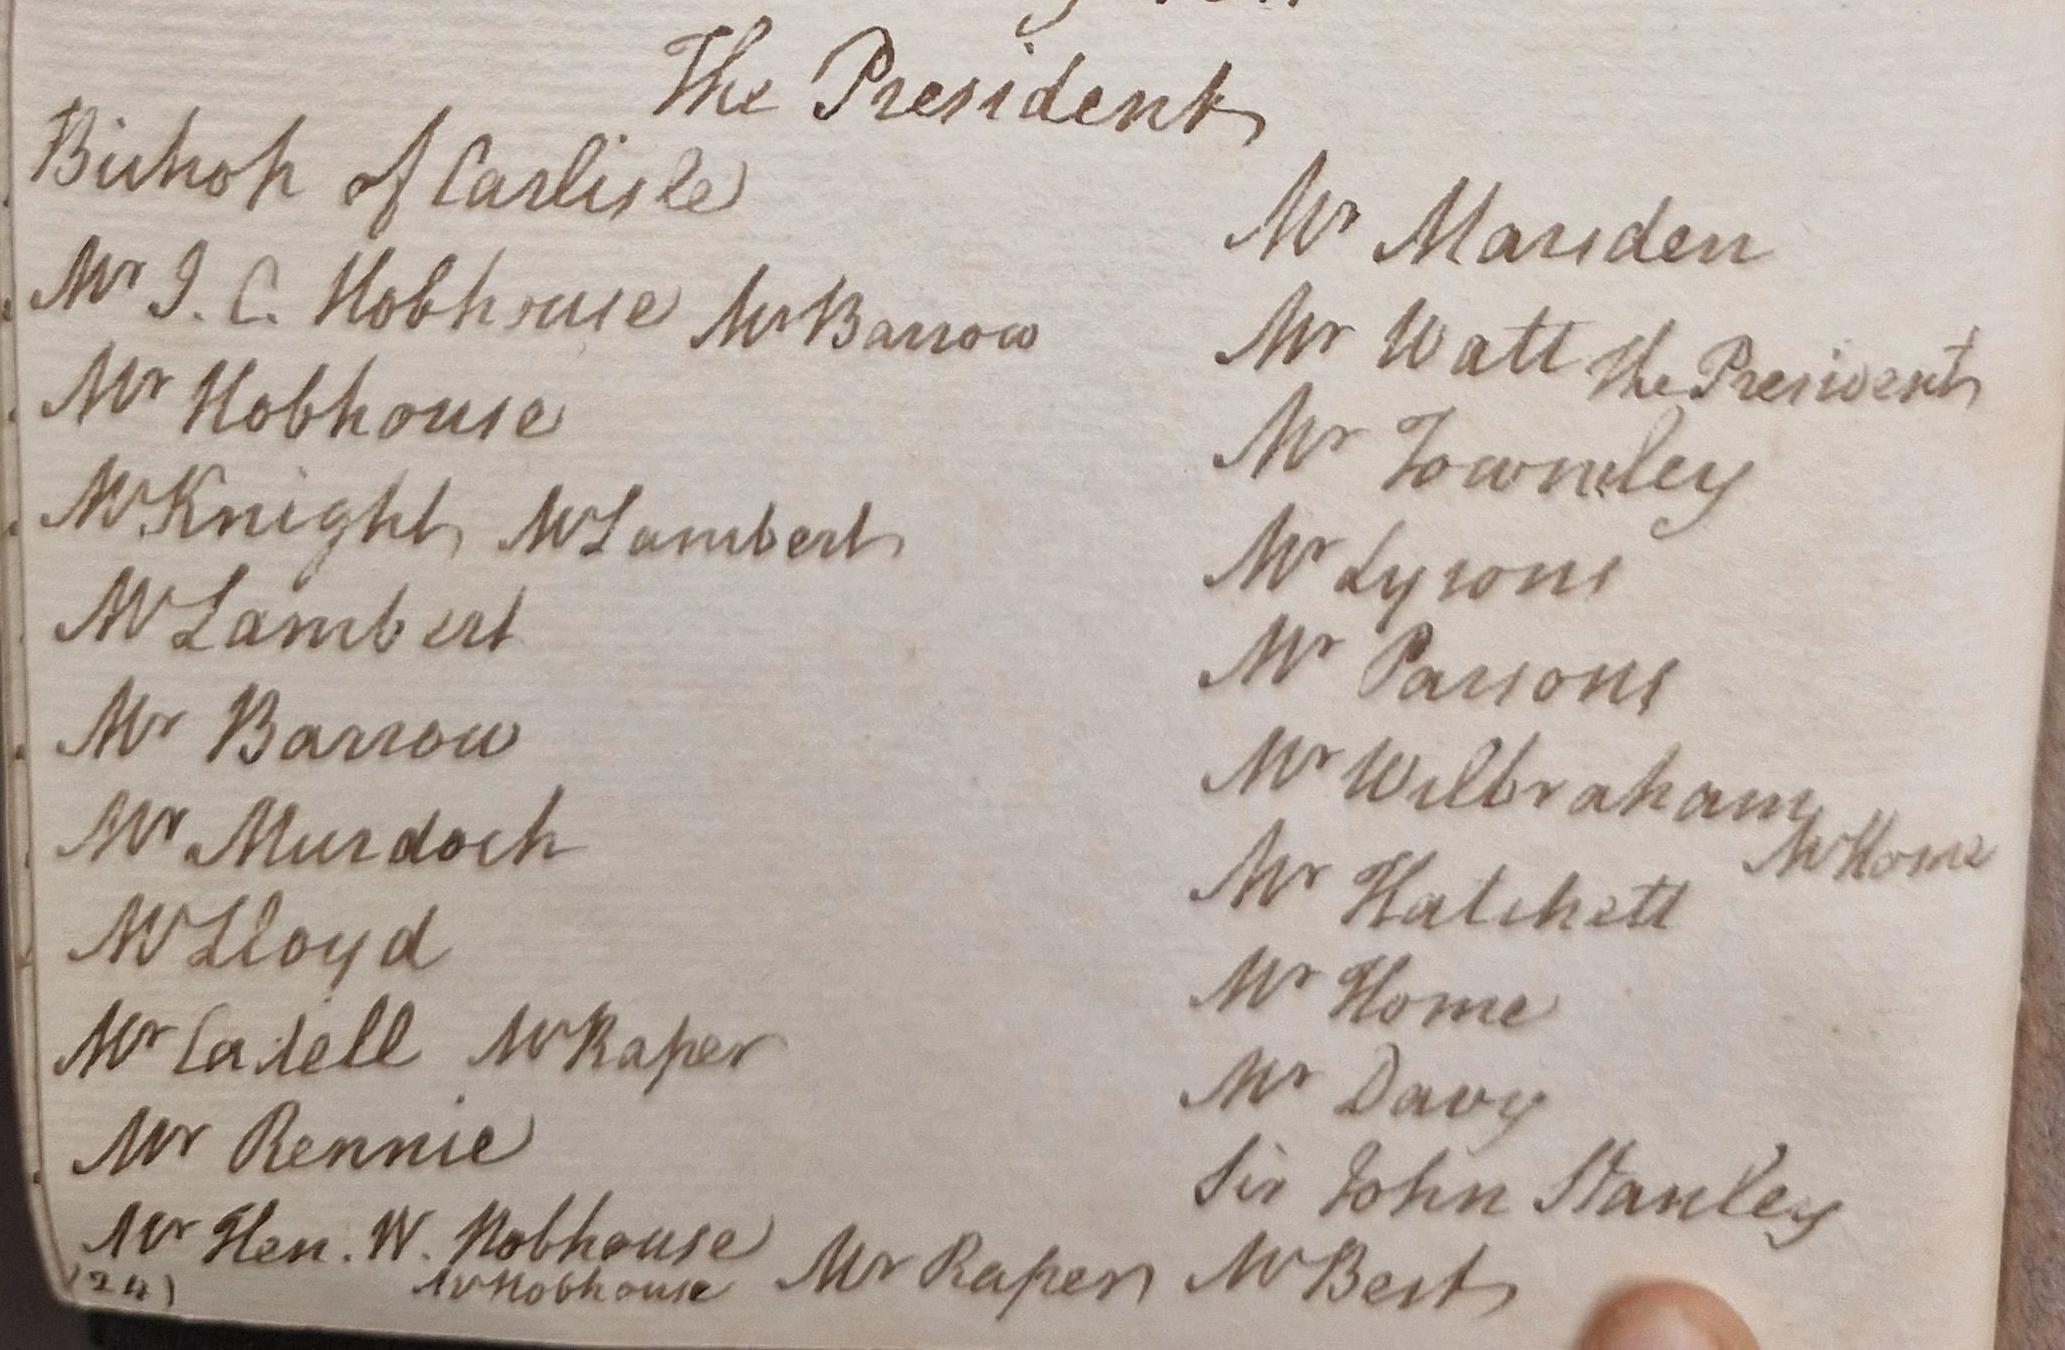 The President
Bishop of Carlisle
Mr I. C. Hobhouse Mr Barrow
Mr Hobhouse
Mr Knight Mr Lambert
Mr Lambert
Mr Barrow
Mr Murdoch
Mr Lloyd
Mr Cadell Mr Raper
Mr Rennie
Mr Hen. W. Hobhouse
(24) Mr Hobhouse Mr Raper Mr Best
Mr Marsden
Mr Watt The President
Mr Townley
Mr Lysons
Mr Parsons
Mr Wilbraham
Mr Home
Mr Hatchett
Mr Home
Mr Davy
Sir John Stanley